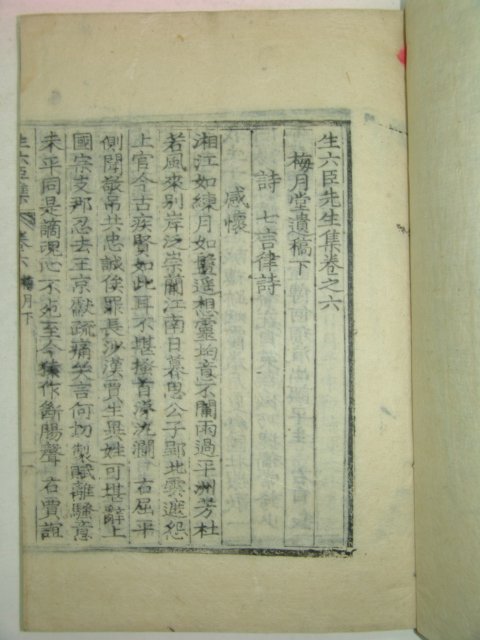 生六臣先生集卷之六
梅月堂遺稿下
詩 七言律詩
感懷
湘江如練月如鬟遙想靈均意不闌雨過平洲芳杜
若風來別岸泛崇蘭江南日暮思公子郢北雲遮怨
上官今古疾賢如此耳不堪搔首淚汍瀾 右屈平
側聞敬吊共忠誠俟罪長沙漢賈生異姓可堪辭上
國宗支那忍去王京獻疏痛哭言何切製賦離騷意
未平同是謫魂心不死至今猿作斷腸聲 右賈誼
生六臣集 卷六 月下